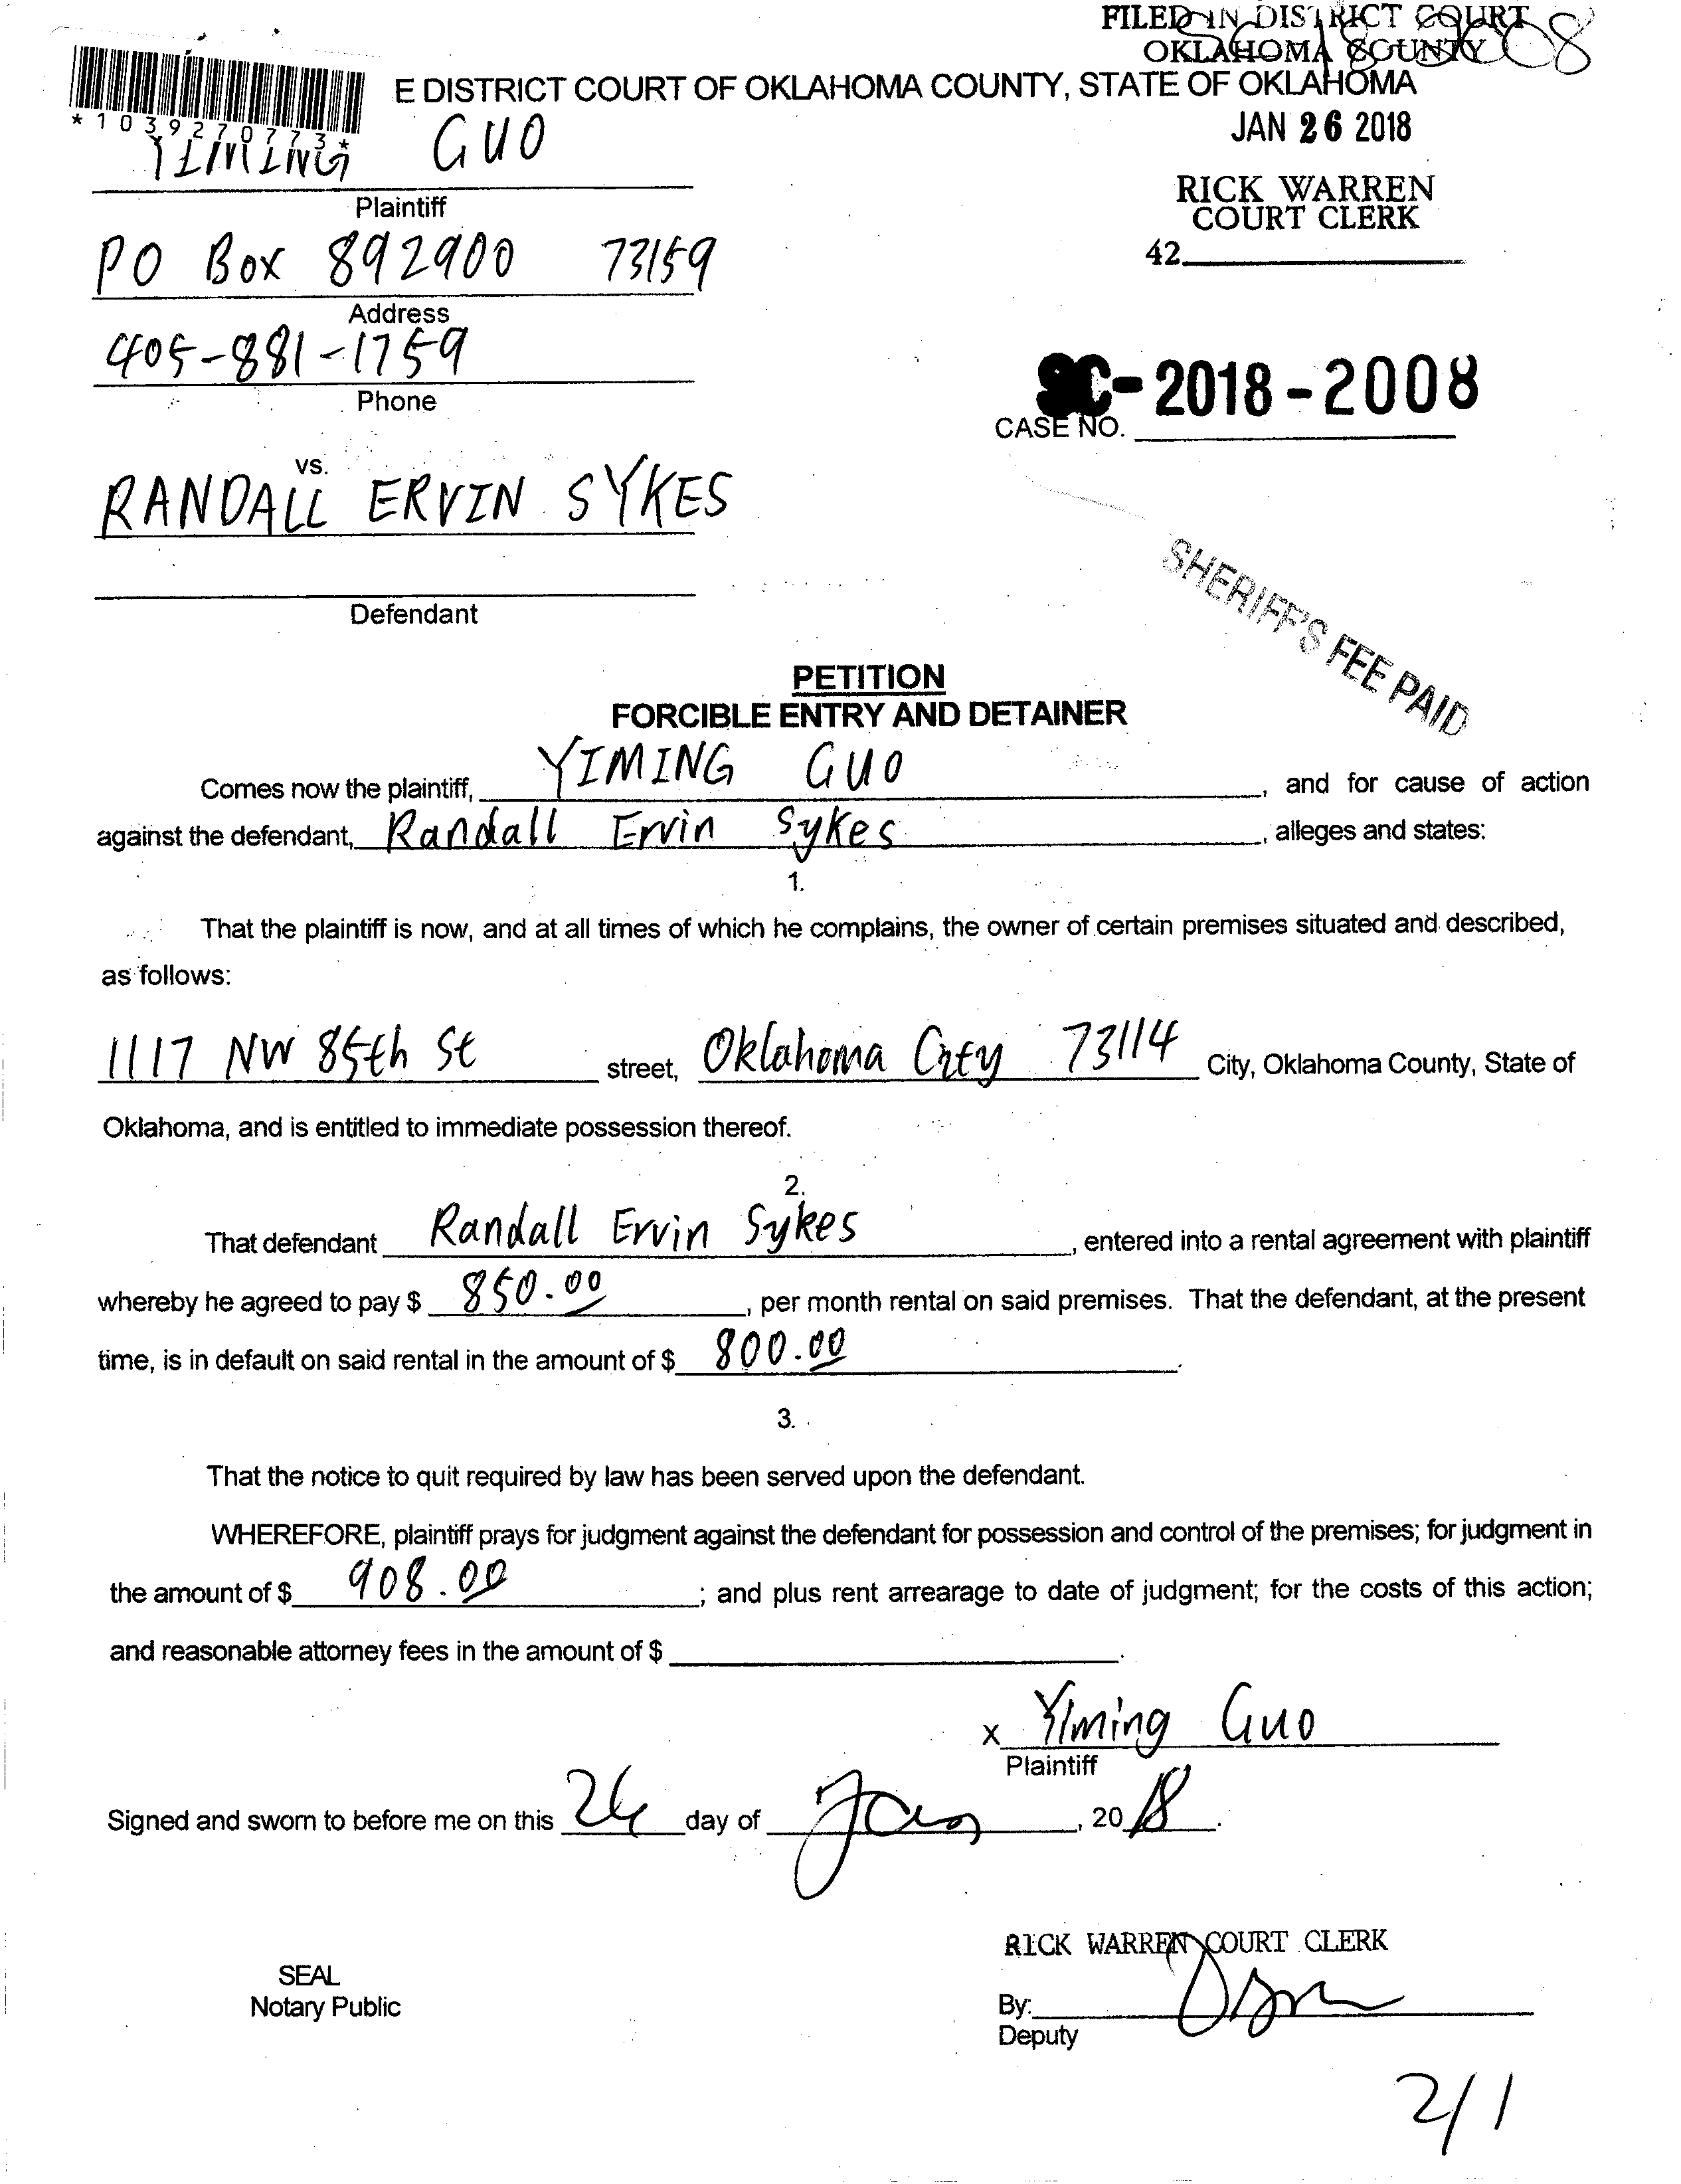 FILED IN DISTRICT COURT
OKLAHOMA COUNTY
SC 18 2008
E DISTRICT COURT OF OKLAHOMA COUNTY, STATE OF OKLAHOMA
*1039270773*
JAN 26 2018
YIMING GUO
Plaintiff
RICK WARREN
COURT CLERK
42
PO Box 892900 73159
Address
405-881-1759
Phone
SC-2018-2008
CASE NO.
vs.
RANDALL ERVIN SYKES
Defendant
SHERIFF'S FEE PAID
PETITION
FORCIBLE ENTRY AND DETAINER
Comes now the plaintiff, YIMING GUO, and for cause of action
against the defendant, Randall Ervin Sykes, alleges and states:
1.
That the plaintiff is now, and at all times of which he complains, the owner of certain premises situated and described,
as follows:
1117 NW 85th St street, Oklahoma City 73114 City, Oklahoma County, State of
Oklahoma, and is entitled to immediate possession thereof.
2.
That defendant Randall Ervin Sykes, entered into a rental agreement with plaintiff
whereby he agreed to pay $ 850.00, per month rental on said premises. That the defendant, at the present
time, is in default on said rental in the amount of $ 800.00.
3.
That the notice to quit required by law has been served upon the defendant.
WHEREFORE, plaintiff prays for judgment against the defendant for possession and control of the premises; for judgment in
the amount of $ 908.00; and plus rent arrearage to date of judgment; for the costs of this action;
and reasonable attorney fees in the amount of $ .
x Yiming Guo
Plaintiff
Signed and sworn to before me on this 26 day of Jan, 2018.
RICK WARREN COURT CLERK
SEAL
Notary Public
By:
Deputy
2/1